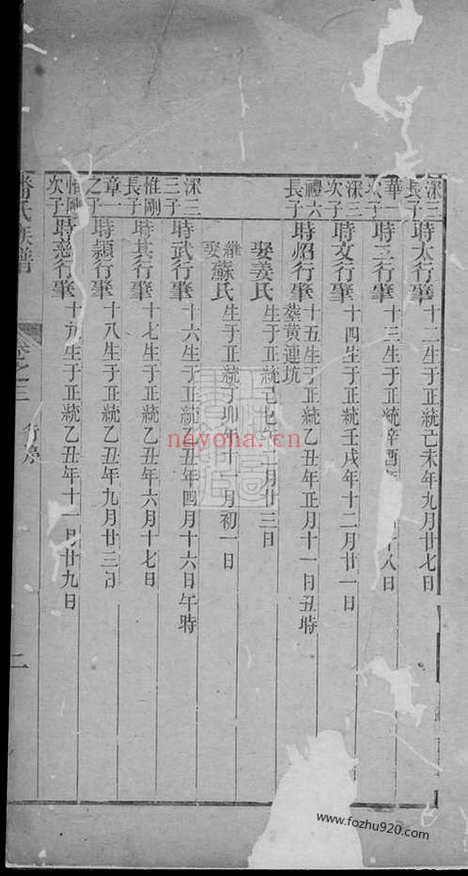 深三長子 時太行肇 十二生于正統己未年九月廿七日
華一次子 時三行肇 十三生于正統辛酉 十八日
深三次子 時文行肇 十四生于正統壬戌年十二月廿一日
禮六長子 時炤行肇 十五生于正統乙丑年正月十一日丑時
葬黄連坑
娶姜氏 生于正統己巳年 二月廿三日
繼娶蘇氏 生于正統丁卯年十 月初一日
深三三子 時武行肇 十六生于正統乙丑年四月十六日午時
惟剛長子 時其行肇 十七生于正統乙丑年六月十七日
章一之子 時頴行肇 十八生于正統乙丑年九月廿三日
惟剛次子 時慈行肇 十九生于正統乙丑年十一月廿九日
潘氏族譜 卷之三 行序 二
nayona.cn
www.fozhu920.com